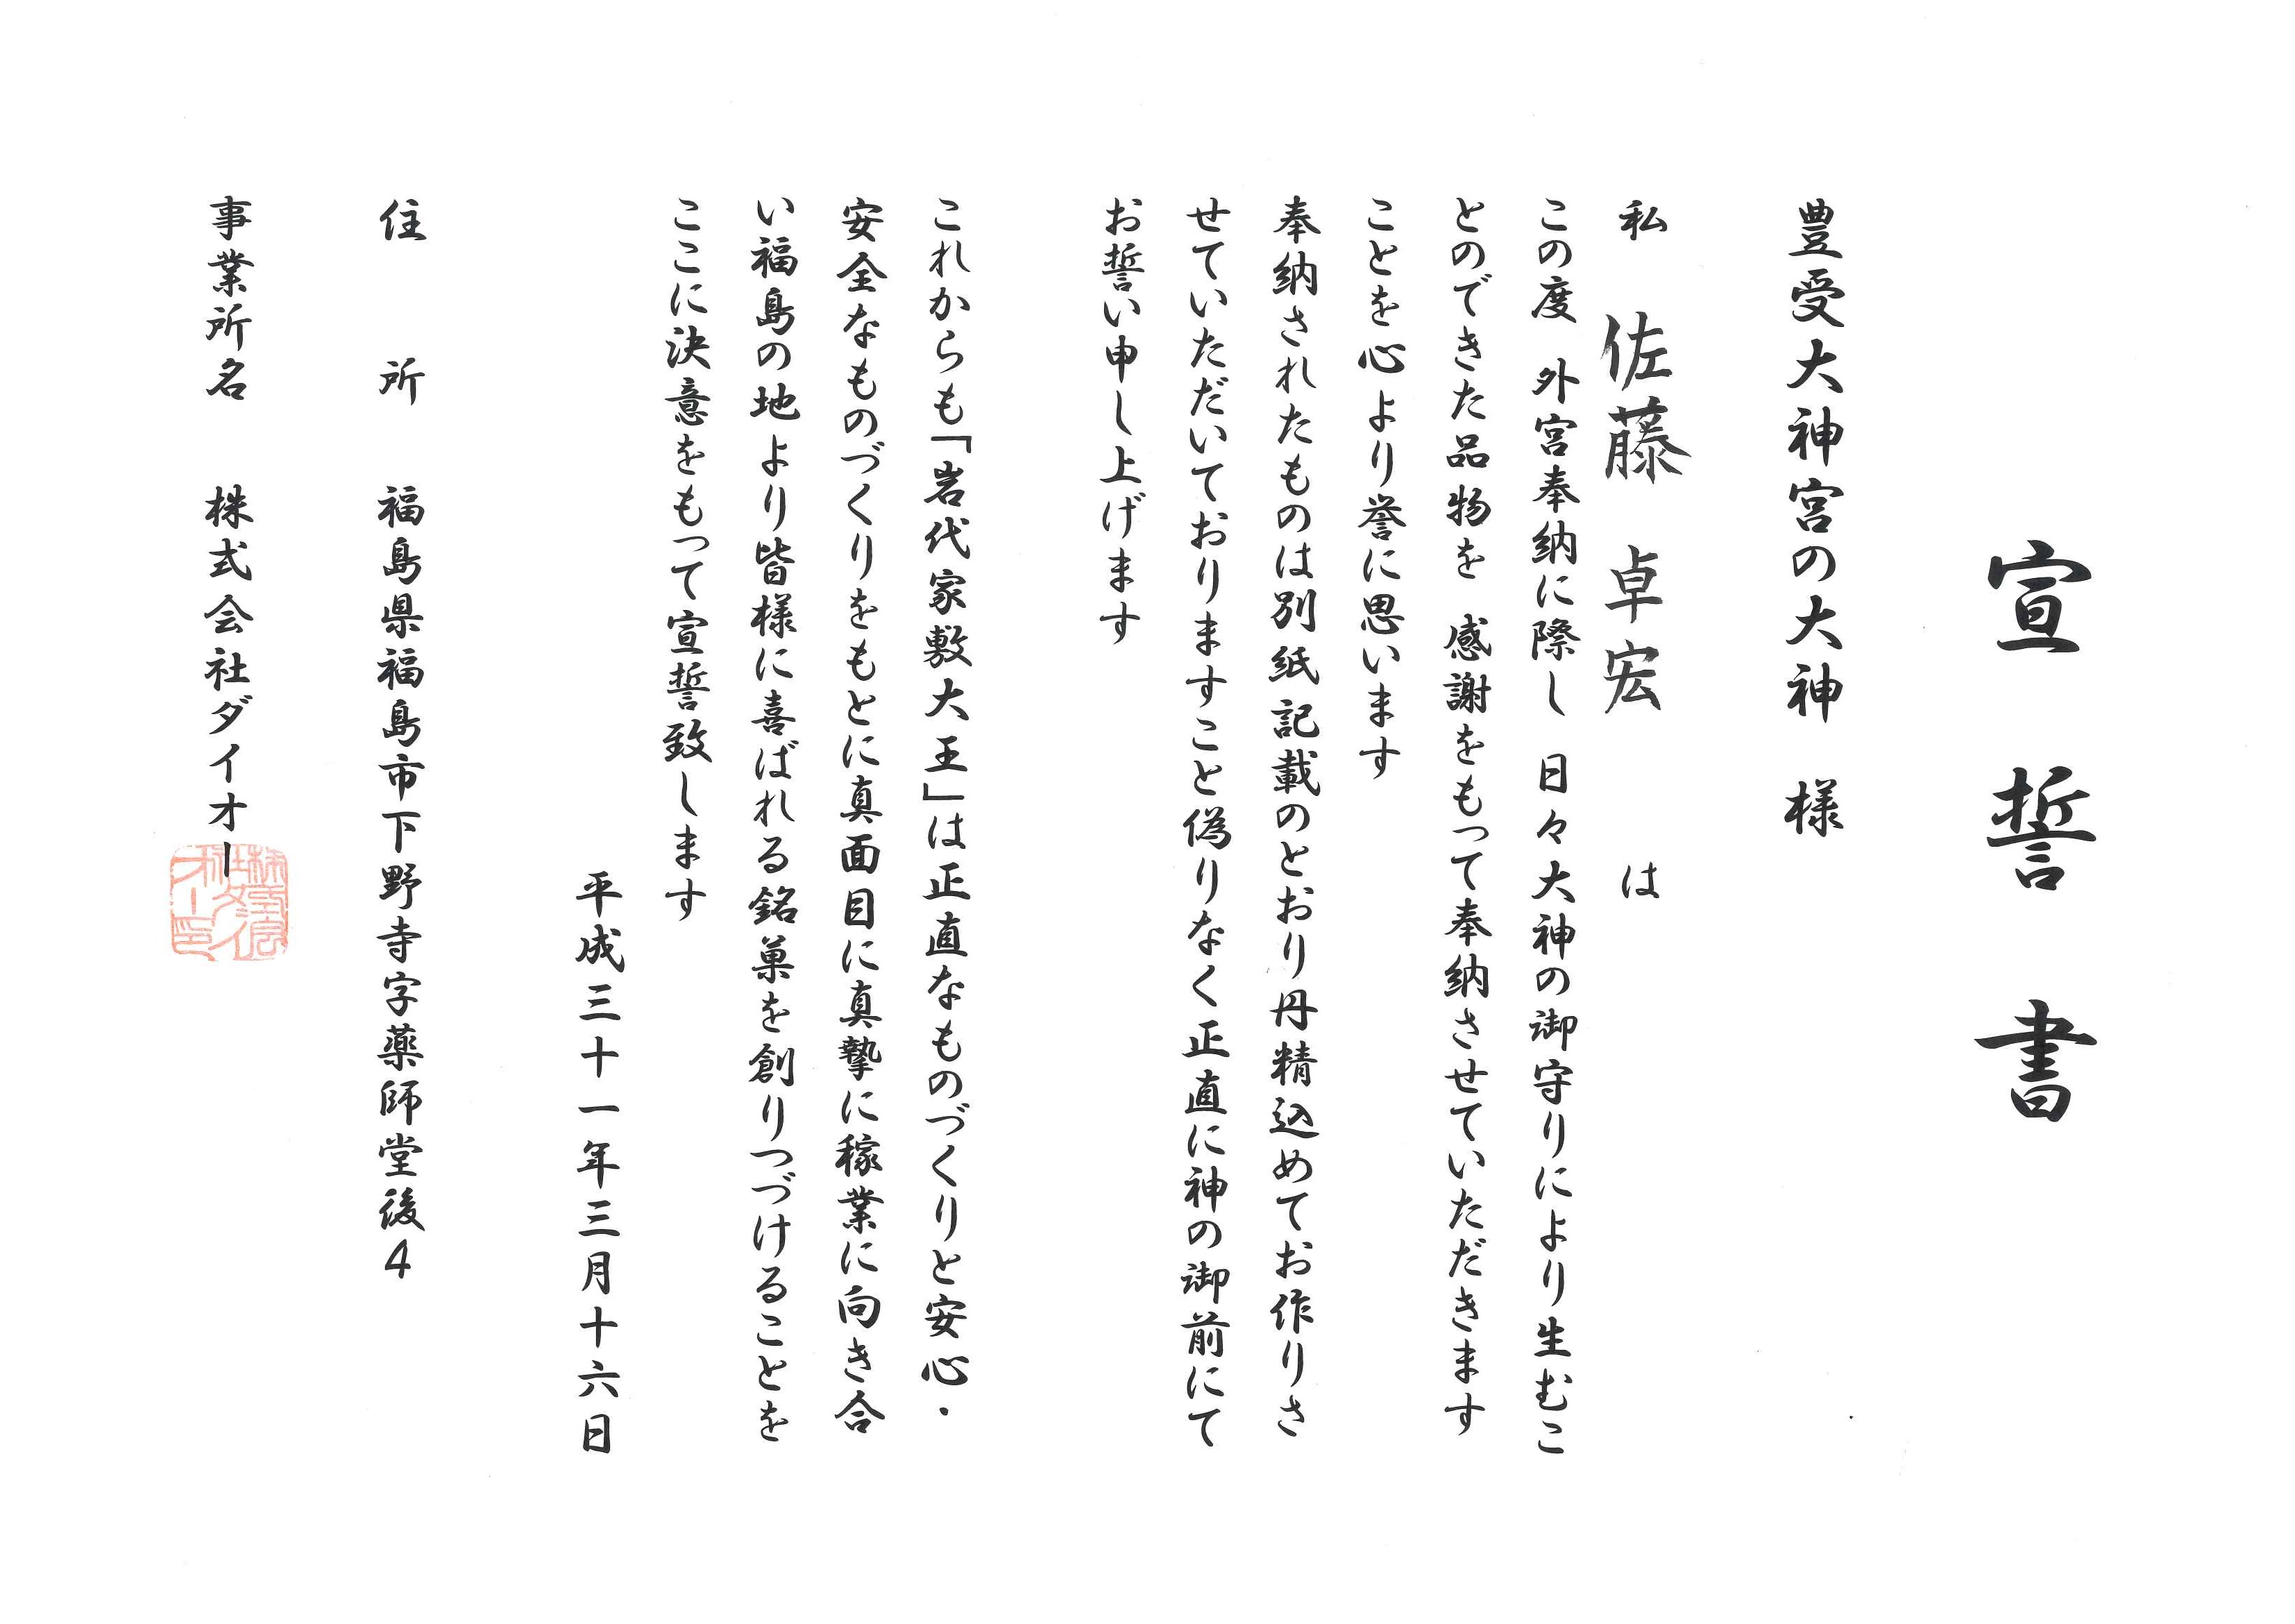 宣誓書
豊受大神宮の大神　様
私　佐藤　卓宏　は
この度　外宮奉納に際し　日々大神の御守りにより生むこ
とのできた品物を　感謝をもって奉納させていただきます
ことを心より誉に思います
奉納されたものは別紙記載のとおり丹精込めてお作りさ
せていただいておりますこと偽りなく正直に神の御前にて
お誓い申し上げます
これからも「岩代家敷大王」は正直なものづくりと安心・
安全なものづくりをもとに真面目に真摯に稼業に向き合
い福島の地より皆様に喜ばれる銘菓を創りつづけることを
ここに決意をもって宣誓致します
平成三十一年三月十六日
住　所　福島県福島市下野寺字薬師堂後4
事業所名　株式会社ダイオー